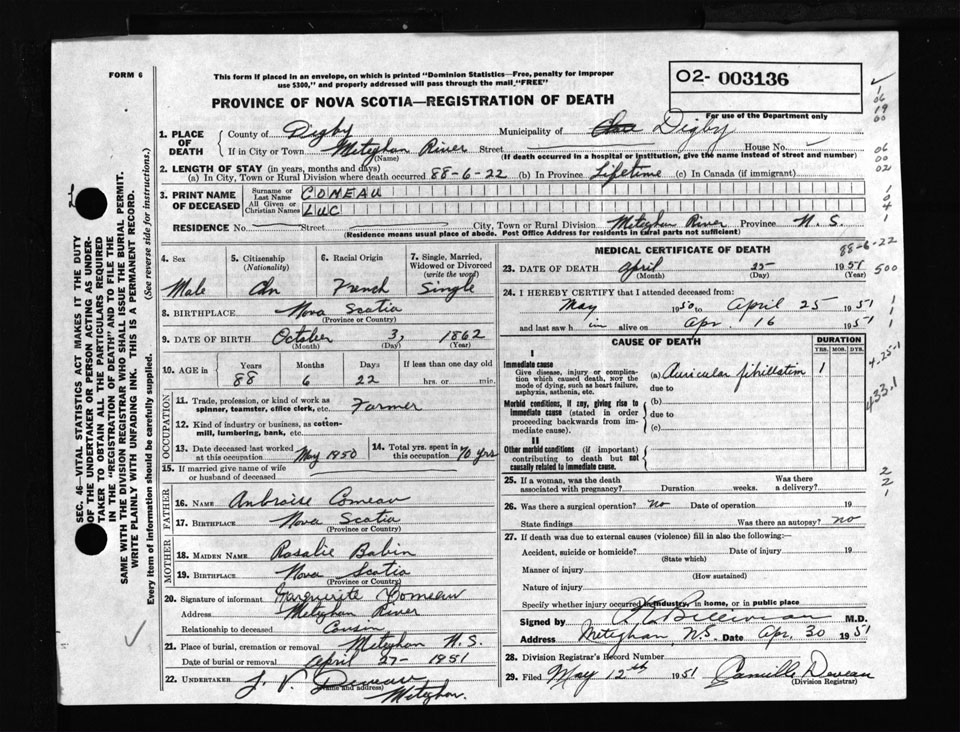 FORM 6
This form if placed in an envelope, on which is printed "Dominion Statistics—Free, penalty for improper
use $300," and properly addressed will pass through the mail "FREE"
02- 003136
For use of the Department only
PROVINCE OF NOVA SCOTIA—REGISTRATION OF DEATH
SEC. 46—VITAL STATISTICS ACT MAKES IT THE DUTY
OF THE UNDERTAKER OR PERSON ACTING AS UNDER-
TAKER TO OBTAIN ALL THE PARTICULARS REQUIRED
IN THE "REGISTRATION OF DEATH" AND TO FILE THE
SAME WITH THE DIVISION REGISTRAR WHO SHALL ISSUE THE BURIAL PERMIT.
WRITE PLAINLY WITH UNFADING INK. THIS IS A PERMANENT RECORD.
Every item of information should be carefully supplied. (See reverse side for instructions.)
1. PLACE OF DEATH
County of Digby Municipality of Clare Digby
If in City or Town Meteghan River Street House No.
(Name) (If death occurred in a hospital or institution, give the name instead of street and number)
2. LENGTH OF STAY (in years, months and days)
(a) In City, Town or Rural Division where death occurred 88-6-22 (b) In Province Lifetime (c) In Canada (if immigrant)
3. PRINT NAME OF DECEASED
Surname or Last Name COMEAU
All Given or Christian Names LUC
RESIDENCE No. Street City, Town or Rural Division Meteghan River Province N.S.
(Residence means usual place of abode. Post Office Address for residents in rural parts not sufficient)
4. Sex Male
5. Citizenship (Nationality) Cdn
6. Racial Origin French
7. Single, Married, Widowed or Divorced (write the word) Single
8. BIRTHPLACE Nova Scotia
(Province or Country)
9. DATE OF BIRTH October 3, 1862
(Month) (Day) (Year)
10. AGE in Years 88 Months 6 Days 22 If less than one day old hrs. or min.
OCCUPATION
11. Trade, profession, or kind of work as spinner, teamster, office clerk, etc. Farmer
12. Kind of industry or business, as cotton-mill, lumbering, bank, etc.
13. Date deceased last worked at this occupation May 1950
14. Total yrs. spent in this occupation 70 yrs
15. If married give name of wife or husband of deceased
FATHER
16. NAME Ambroise Comeau
17. BIRTHPLACE Nova Scotia
(Province or Country)
MOTHER
18. MAIDEN NAME Rosalie Babin
19. BIRTHPLACE Nova Scotia
(Province or Country)
20. Signature of informant Marguerite Comeau
Address Meteghan River
Relationship to deceased Cousin
21. Place of burial, cremation or removal Meteghan N.S.
Date of burial or removal April 27- 1951
22. UNDERTAKER J. V. Deveau
(Name and address) Meteghan.
MEDICAL CERTIFICATE OF DEATH 88-6-22
23. DATE OF DEATH April 25 1951
(Month) (Day) (Year)
500
24. I HEREBY CERTIFY that I attended deceased from:
May 1950 to April 25 1951
and last saw him alive on Apr. 16 1951
CAUSE OF DEATH
DURATION
YRS. MOS. DYS.
I
Immediate cause
Give disease, injury or complication which caused death, NOT the mode of dying, such as heart failure, asphyxia, asthenia, etc.
(a) Auricular fibrillation 1
due to
Morbid conditions, if any, giving rise to immediate cause (stated in order proceeding backwards from immediate cause).
(b)
due to
(c)
4-25-1
433.1
II
Other morbid conditions (if important) contributing to death but not causally related to immediate cause.
25. If a woman, was the death associated with pregnancy? Duration weeks. Was there a delivery?
26. Was there a surgical operation? no Date of operation 19
State findings Was there an autopsy? no
27. If death was due to external causes (violence) fill in also the following:—
Accident, suicide or homicide? Date of injury 19
(State which)
Manner of injury
(How sustained)
Nature of injury
Specify whether injury occurred in industry, in home, or in public place
Signed by M.D.
Address Meteghan, N.S. Date Apr. 30 1951
28. Division Registrar's Record Number
29. Filed May 12th 1951 Camille Deveau
(Division Registrar)